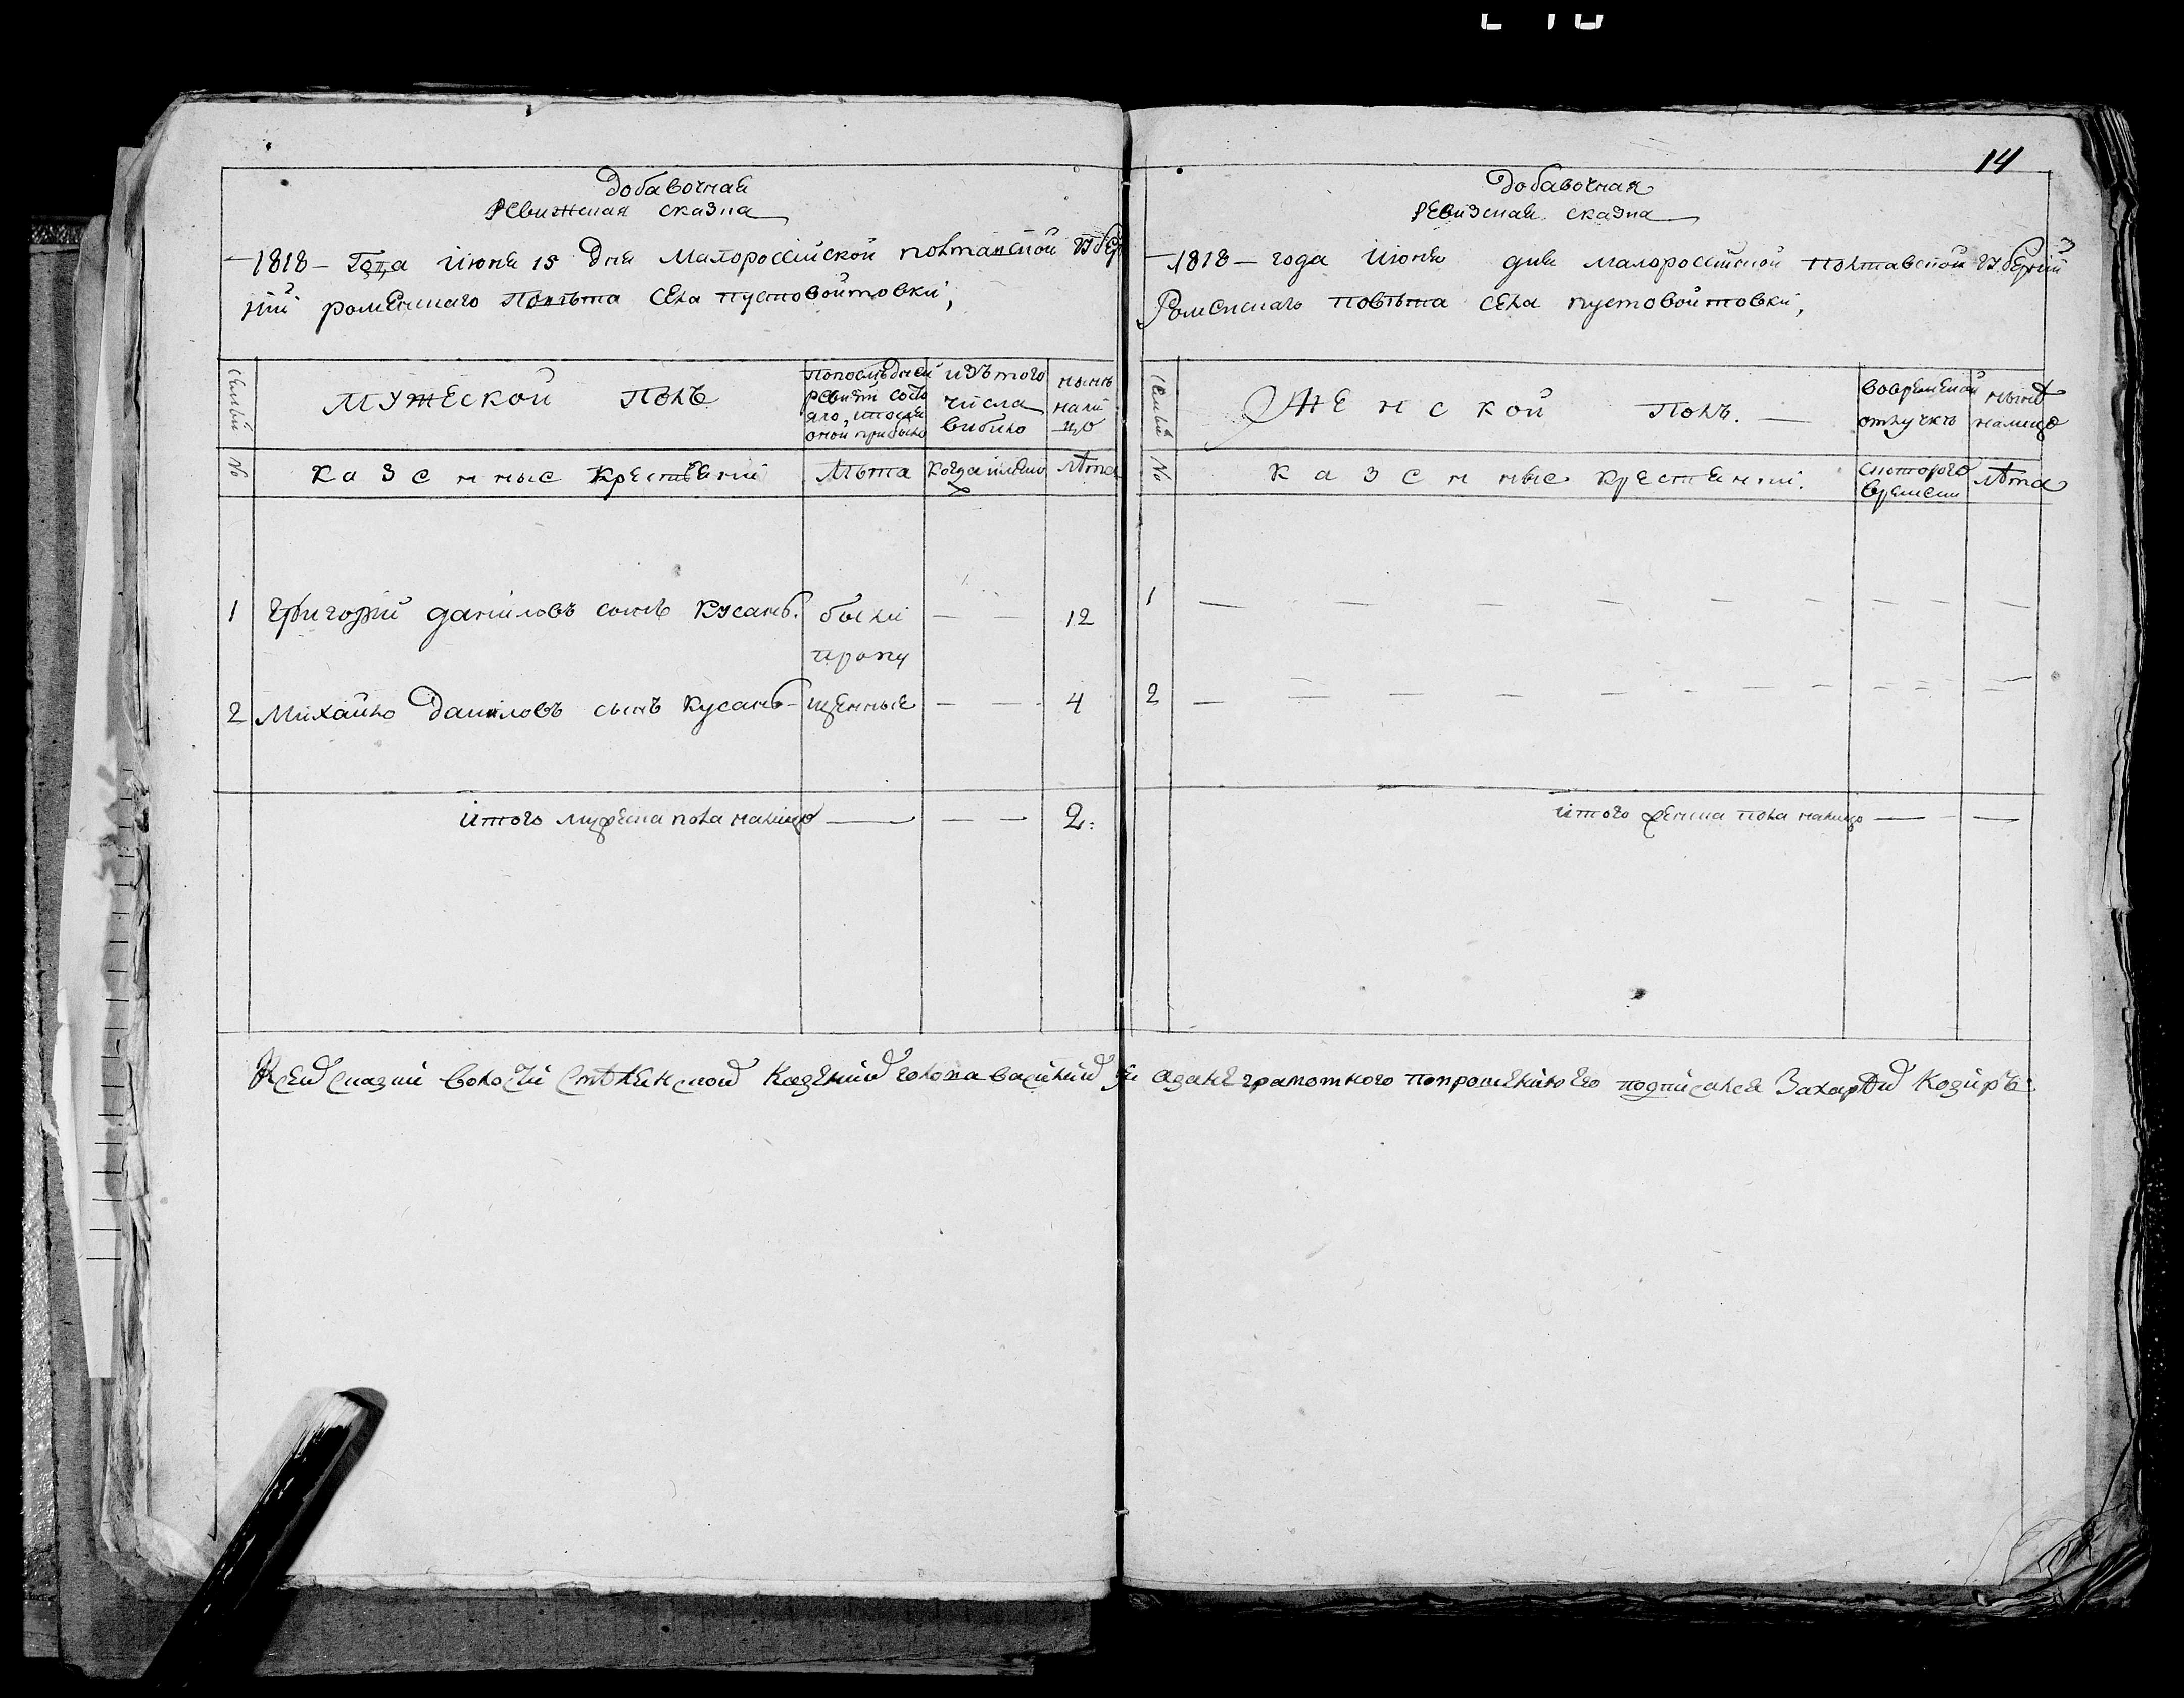 Добавочная
Ревижская сказка
— 1818 — Года июня 15 Дня Малороссійской полтавской Губер
ніи роменского Повѣта села пустовойтовки,
семьи
МУЖЕСКОЙ ПОЛЪ
попослѣдней ревизіи состояло, ипосля оной прибыло
изътого числа выбило
нынѣ налицо
№
Казенные крестьяніи
Лѣта
Когда имено
лѣта
1 Григорій даниловъ сынъ Кусакъ. были — — 12
пропу
2 Михайло Даниловъ сынъ Кусакъ — щенные — — 4
итого мужеска пола налицо — — — 2:
14
Добавочная
ревизская сказка
— 1818 — года Июня дня малороссійской Полтавской Губерніи
Роменскаго повѣта села пустовойтовки,
семьи
ЖЕНСКОЙ ПОЛЪ. —
вовременой отлучкѣ
нынѣ налицо
№
Казенные крестяніи.
скоторого времени
лѣта
1 — — — — — — — — — —
2 — — — — — — — — — —
итого женска пола налицо — — —
Ксей сказки волости Смѣлянской Казеній голова василий
азанеграмотного попрошенію его подписался Захарѣй Козиръ